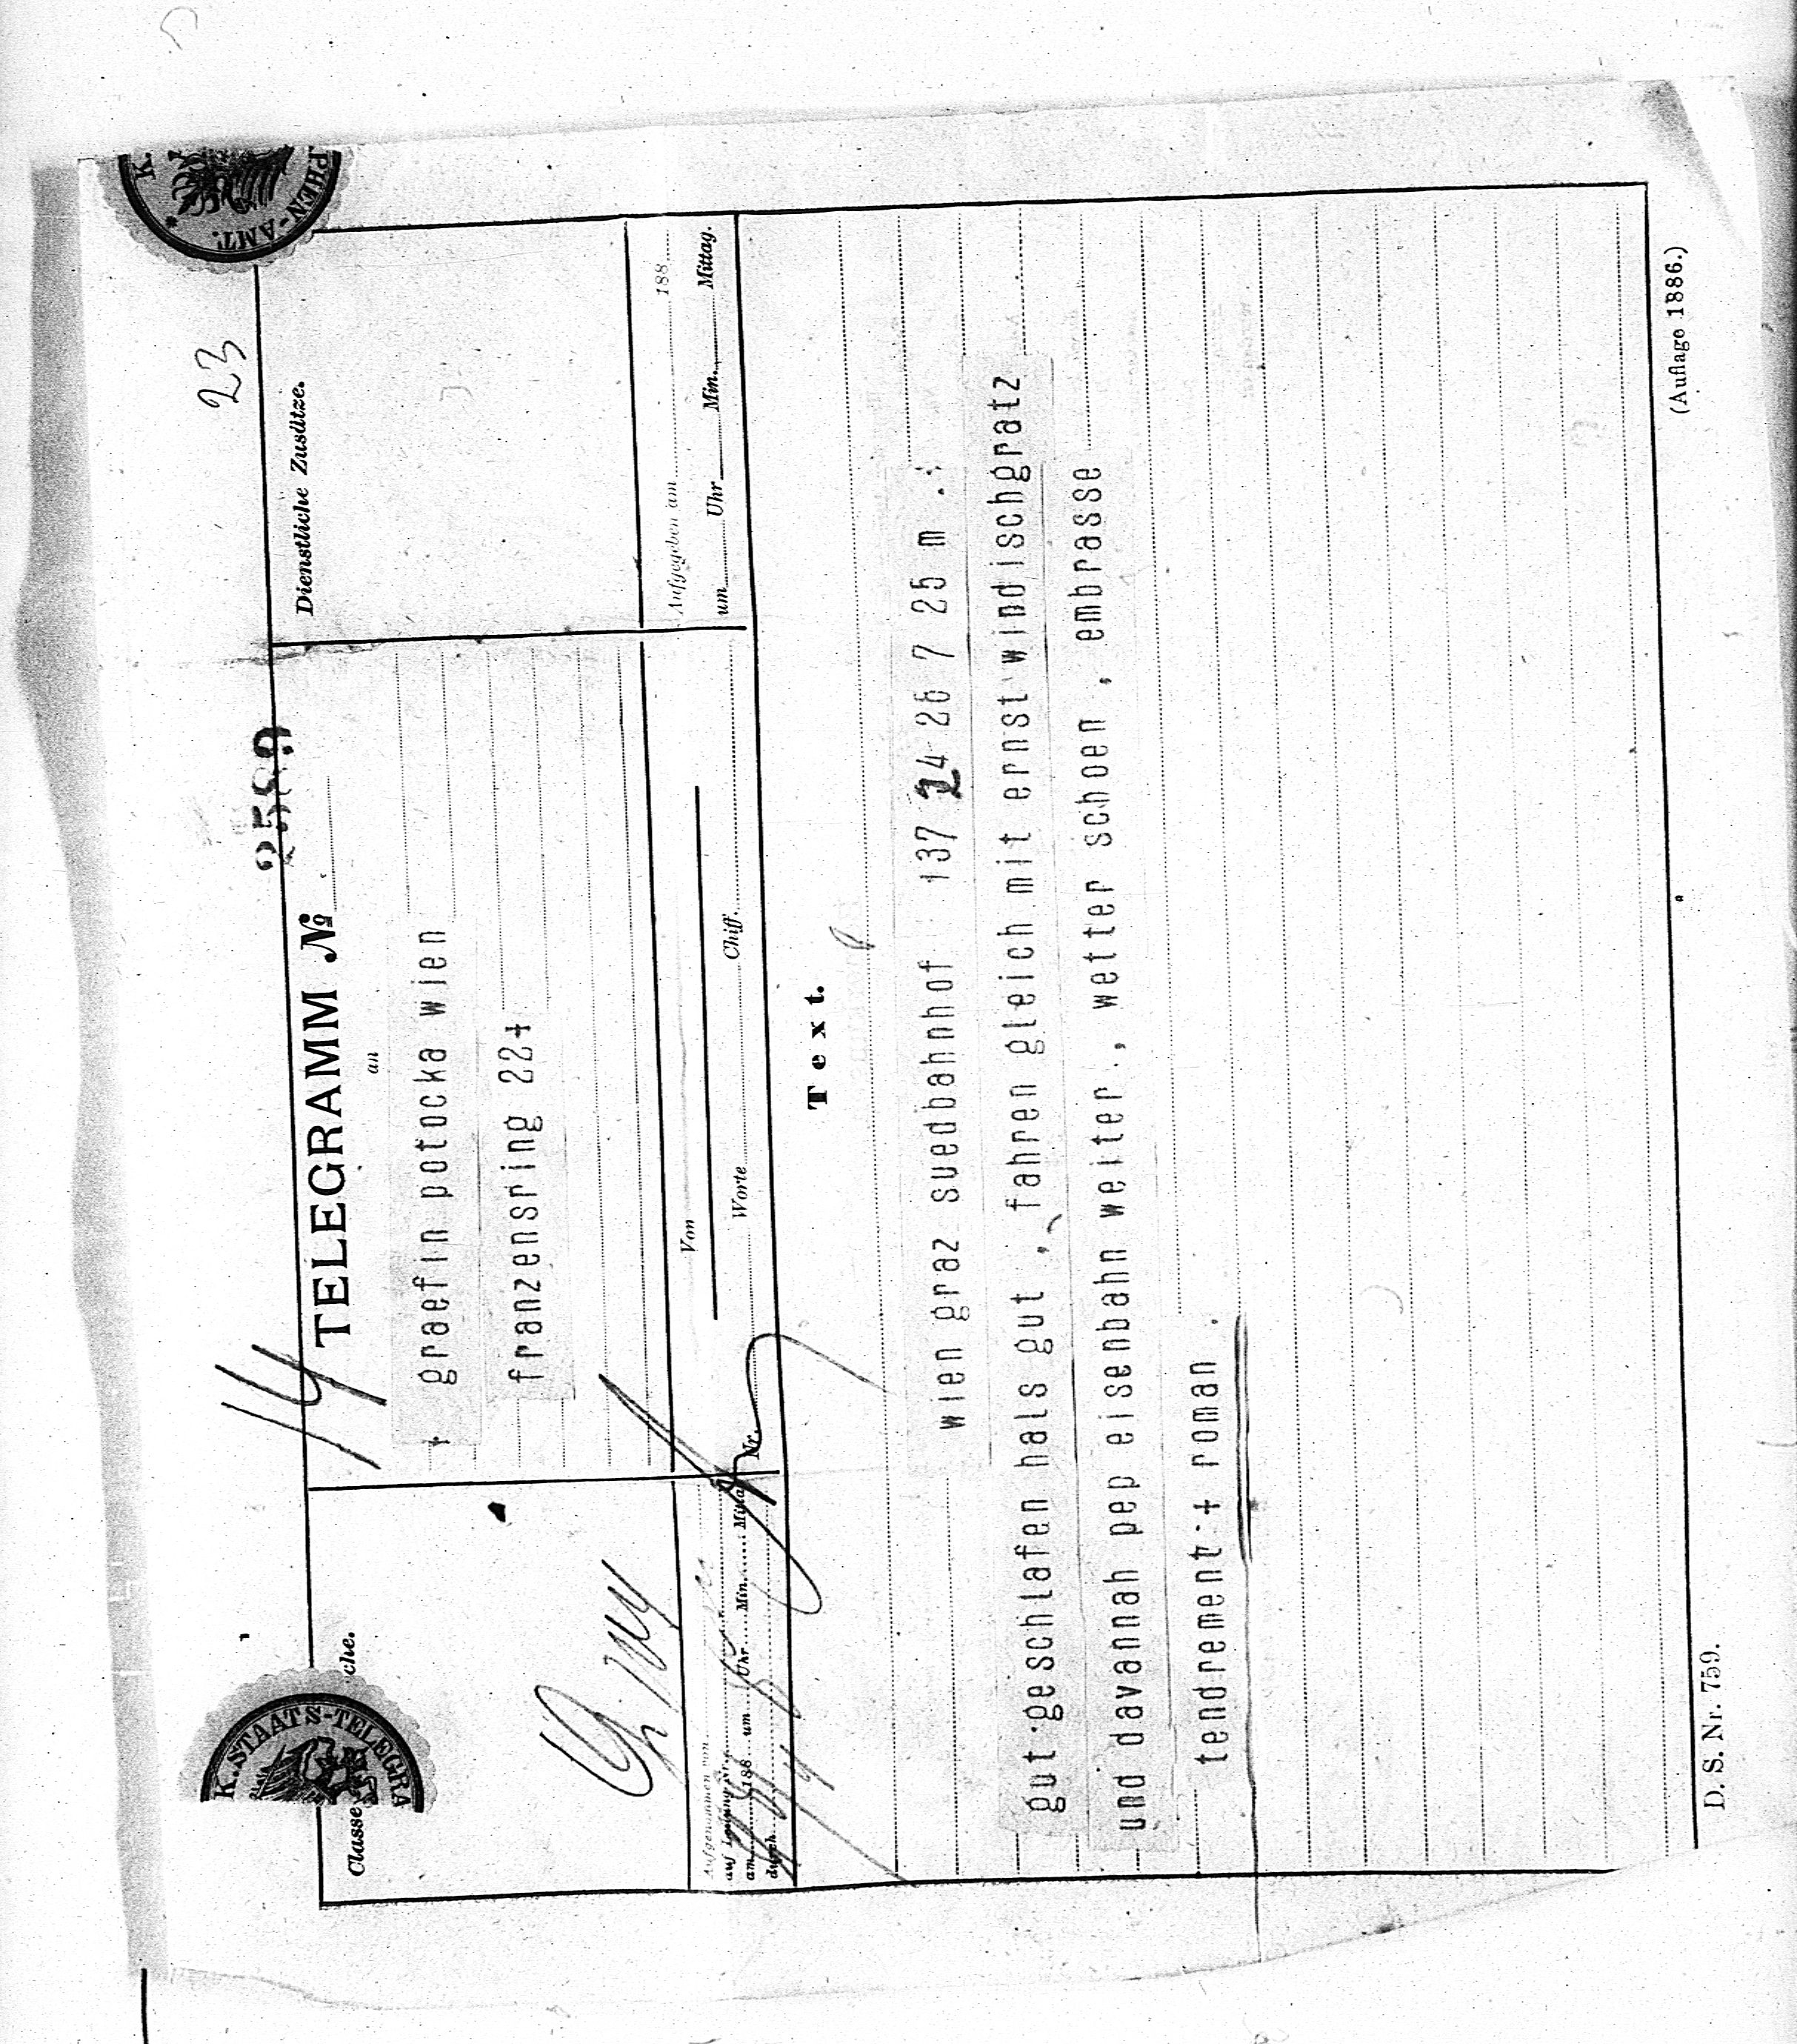 23
2589
14
TELEGRAMM №
an
Dienstliche Zusätze.
Classe che.
K. STAATS-TELEGRA
K. PHEN-AMT.
+ graefin potocka wien
franzensring 22+
Von
Aufgegeben am 188
um Uhr Min. Mittag.
Aufgenommen von
auf Leitung Nr.
am 188 um Uhr Min. Mittag
durch
Nr. Worte Chiff.
Text.
wien graz suedbahnhof 137 24 26 7 25 m .
gut geschlafen hals gut , fahren gleich mit ernst windischgratz
und davannah pep eisenbahn weiter , wetter schoen , embrasse
tendrement + roman .
D. S. Nr. 759.
(Auflage 1886.)